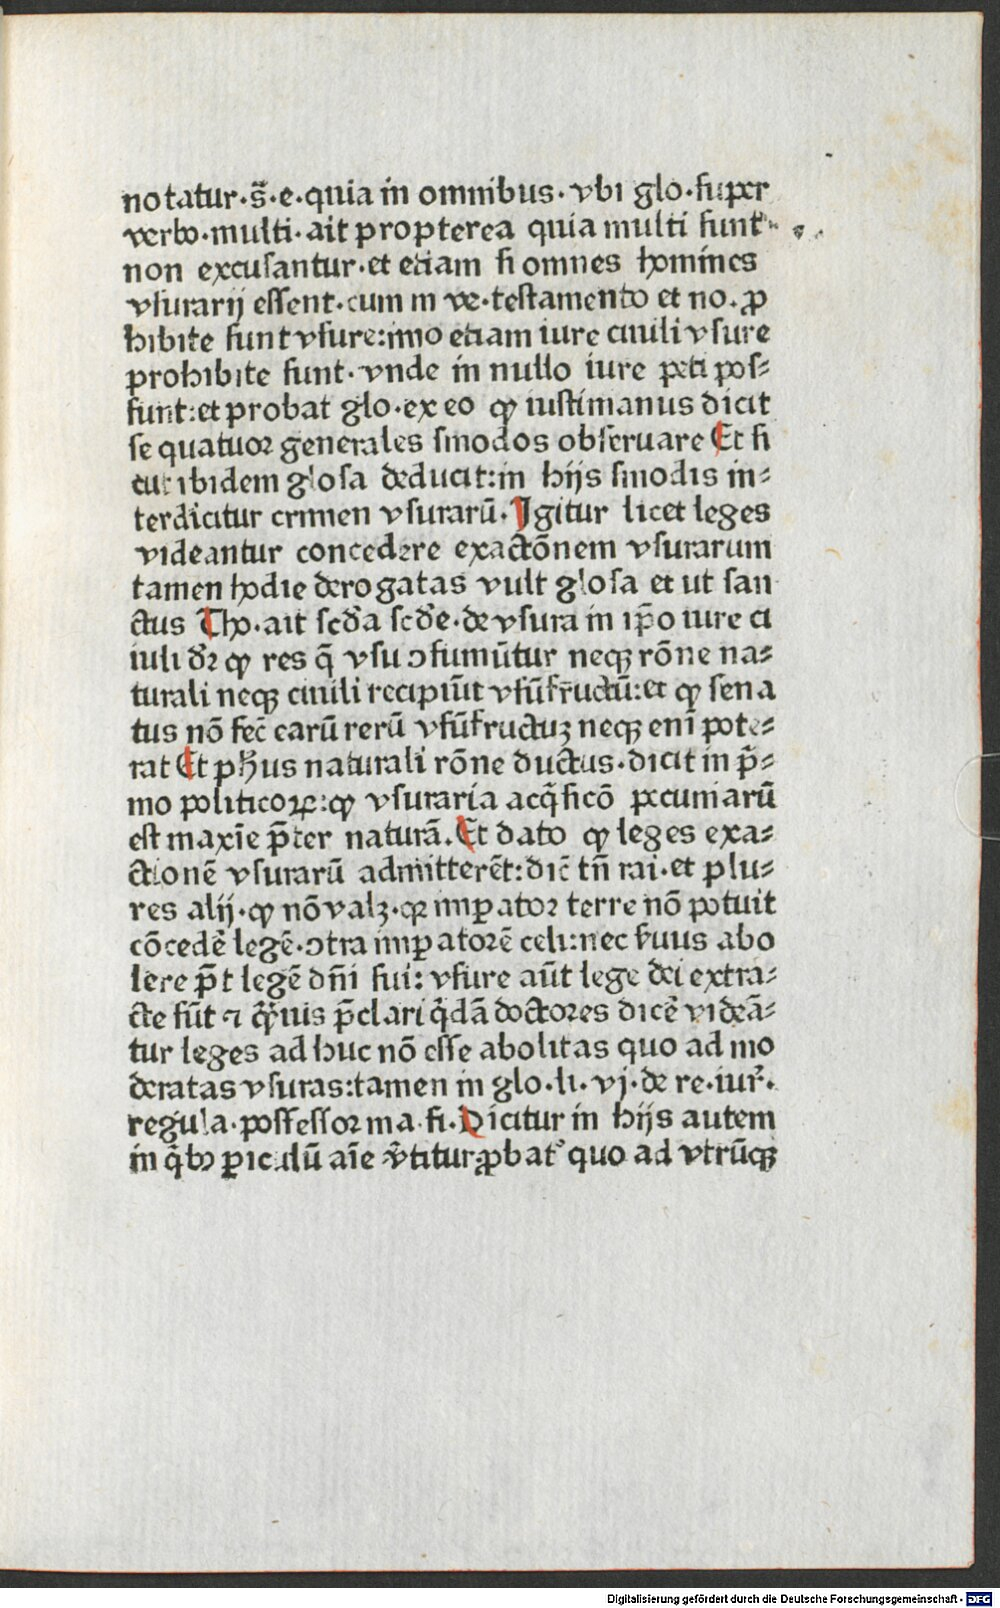 notatur·s̃·e·quia in omnibus·vbi glo·ſuper
verbo·multi·ait propterea quia multi ſunt
non excuſantur·et etiam ſi omnes homines
vſurarij eſſent·cum in ve·teſtamento et no·ꝓ
hibite ſunt vſure:imo etiam iure ciuili vſure
prohibite ſunt·vnde in nullo iure peti poſ⸗
ſunt:et probat glo·ex eo ꝙ iuſtimanus dicit
ſe quatuor generales ſinodos obſeruare Et ſi
cut ibidem gloſa deducit:in hijs ſinodis in⸗
terdicitur crimen vſurarū·Igitur licet leges
videantur concedere exactōnem vſurarum
tamen hodie derogatas vult gloſa et ut san
ctus Tho·ait ſcd̄a ſcd̄e·de vſura in ip̄o iure ci
iuli dr̄ ꝙ res q̄ vſu ↄſumūtur neqꝫ rōne na⸗
turali neqꝫ ciuili recipiūt vſūfructū:et ꝙ ſena
tus nō fec̄ earū rerū vſūfructuꝫ neqꝫ enī pote⸗
rat Et pħus naturali rōne ductus·dicit in p̄⸗
mo politicoꝝ:ꝙ vſuraria acq̄ſicō pecuniarū
eſt maxīe p̄ter naturā·Et dato ꝙ leges exa⸗
ctionē vſurarū admitterēt:dic̄ tn̄ rai·et plu⸗
res alij·ꝙ nō valꝫ·qꝛ imꝑator terre nō potuit
cōcedē legē·ↄtra imꝑatorē celi:nec ſ̄uus abo
lere p̄t legē dn̄i ſui: vſure aūt lege dei extra⸗
cte ſūt ⁊ qr̄uis p̄clari q̄dā doctores dicē videā⸗
tur leges ad huc nō eſſe abolitas quo ad mo
deratas vſuras:tamen in glo·li·vj·de re·iur̄·
regula·poſſeſſor ma·fi·Dicitur in hijs autem
in q̄bꝫ ꝑiculū aīe v̄titur ꝓbat᷑ quo ad vtrūqꝫ
Digitalisierung gefördert durch die Deutsche Forschungsgemeinschaft - DFG